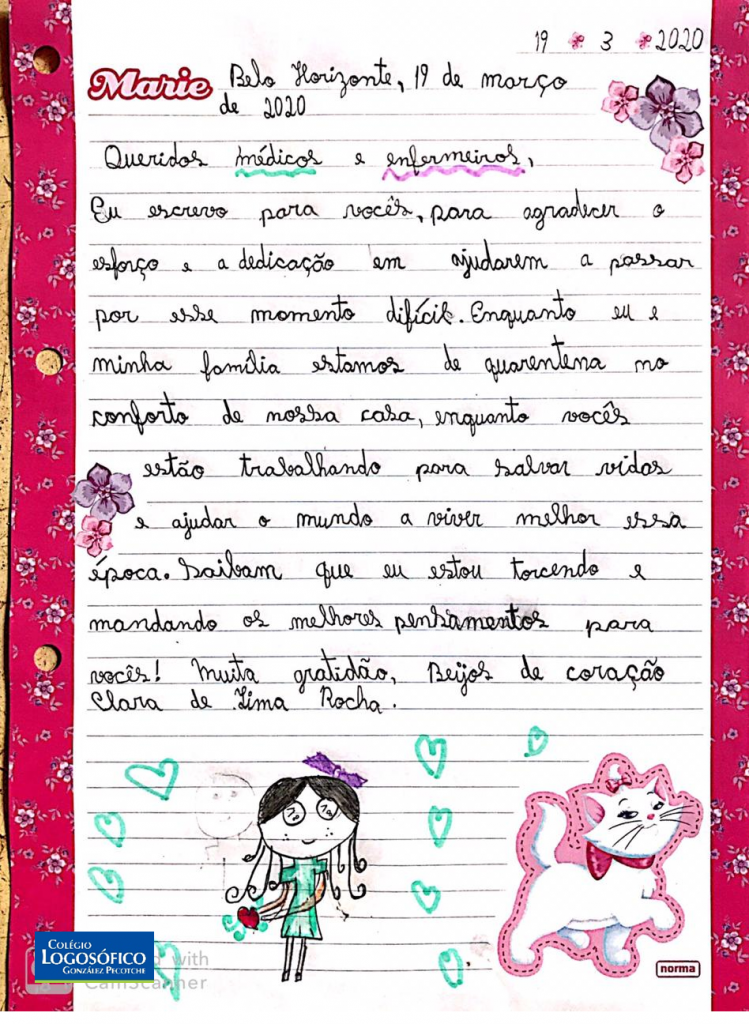 19 3 2020
Marie Belo Horizonte, 19 de março
de 2020
Queridos médicos e enfermeiros,
Eu escrevo para vocês, para agradecer o
esforço e a dedicação em ajudarem a passar
por esse momento difícil. Enquanto eu e
minha família estamos de quarentena no
conforto de nossa casa, enquanto vocês
estão trabalhando para salvar vidas
e ajudar o mundo a viver melhor essa
época. Saibam que eu estou torcendo e
mandando os melhores pensamentos para
vocês! Muita gratidão, Beijos de coração
Clara de Lima Rocha.
norma
COLÉGIO
LOGOSÓFICO
GONZÁLEZ PECOTCHE
with
CamScanner